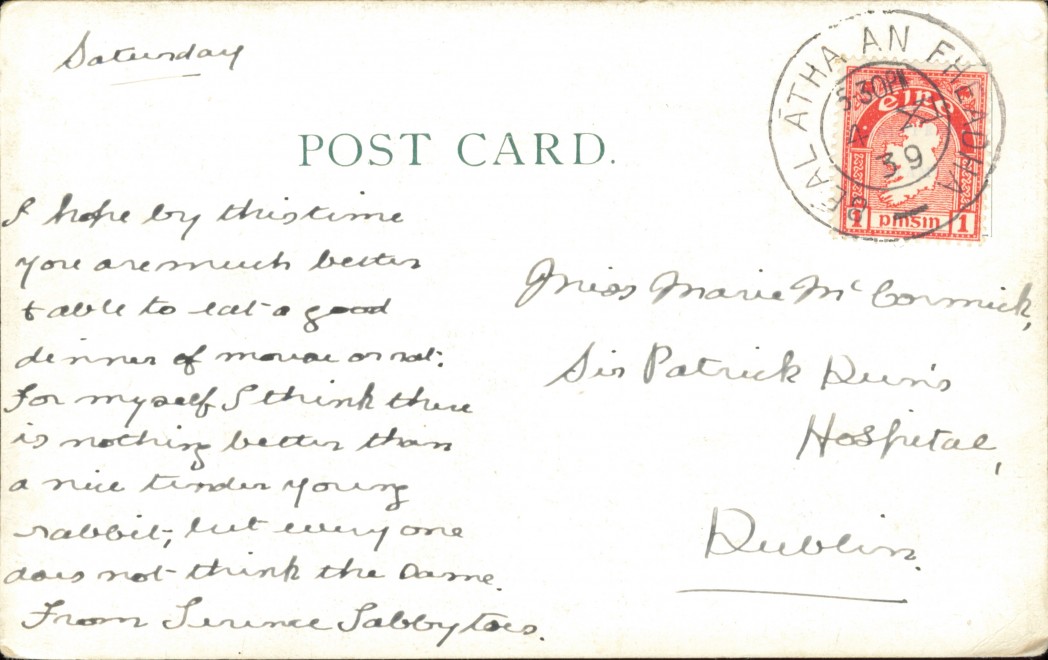 Saturday
BÉAL ÁTHA AN FHEADHA
5:30PM
4 X
39
éire
1 pinsin 1
POST CARD.
I hope by this time
you are much better
& able to eat a good
dinner of mouse or rat.
For myself I think there
is nothing better than
a nice tender young
rabbit, but every one
does not think the same.
From Terence Tabbytoes.
Miss Marie McCormick,
Sir Patrick Dun's
Hospital,
Dublin.